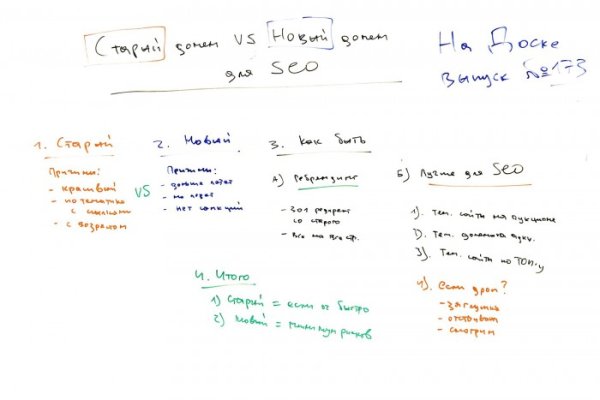 Старый домен VS Новый домен
для SEO
На Доске
выпуск №173
1. Старый
Причины:
- красивый
- по тематике
с ссылками
- с возрастом
VS
2. Новый
Причины:
- дольше
- нет санкций
3. Как быть
А) Ребрендинг
- 301 редирект
со старого
- Все на все стр.
Б) Лучше для SEO
1). Тем. сайты на аукционе
2). Тем. домены аукц.
3). Тем. сайты по ТОП-у
4). если дроп?
- заглушка
- отстойник
- смотрим
4. Итого
1) Старый = если оч быстро
2) Новый = минимум рисков